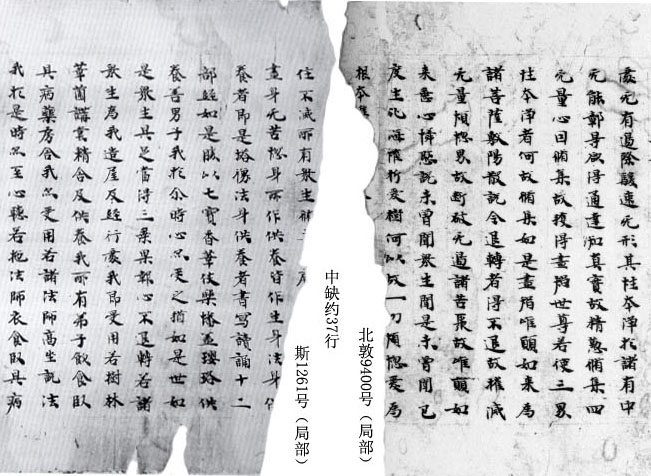 處无有過除駛速无形其性本淨於諸有中
无能鄣导欲得通達知真實故精懃脩集四
无量心因脩集故獲得盡智世尊若使三界
性本淨者何故脩集如是盡智唯願如来爲
諸菩薩敷陽散說令退轉者得不退故摧滅
无量煩惱界故斷破无邊諸苦聚故唯願如
来慈心憐愍說未曾聞衆生聞是未曾聞已
度生死海摧折愛樹何以故一切煩惱愛爲
根本
北敦9400号（局部）
中缺约37行
斯1261号（局部）
住不滅亦有衆生脩
盡身无苦惱身所作供養皆作生身法身供
養者即是塔像法身供養者書寫讀誦十二
部經如是勝以七寶香華伎樂幡蓋瓔珞供
養善男子我於尒時心亦受之猶如是世如
是衆生具足當得三乘果報心不退轉若諸
衆生爲我造屋及經行處我即受用若樹林
草菌講堂精舍及供養我所有弟子飲食臥
具病藥房舍我亦受用若諸法師高坐說法
我於是時亦至心聽若施法師衣食臥具病